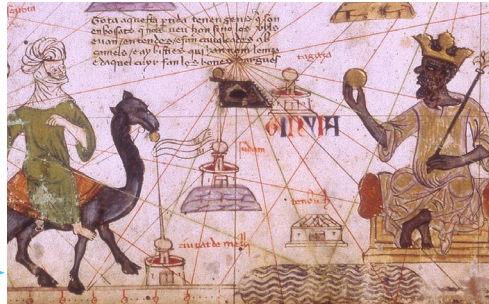 Tota aquesta ptida tenen gens q son
enbosats q nols veu hom sino los uyls
e uan en tendes e fan caualcades ab
camels e ay bisties qui han nom lemp
e daquel cuyr fan les bones dargues
tagaza
GINYIA
sudam
tenbuch
ciutat de melly